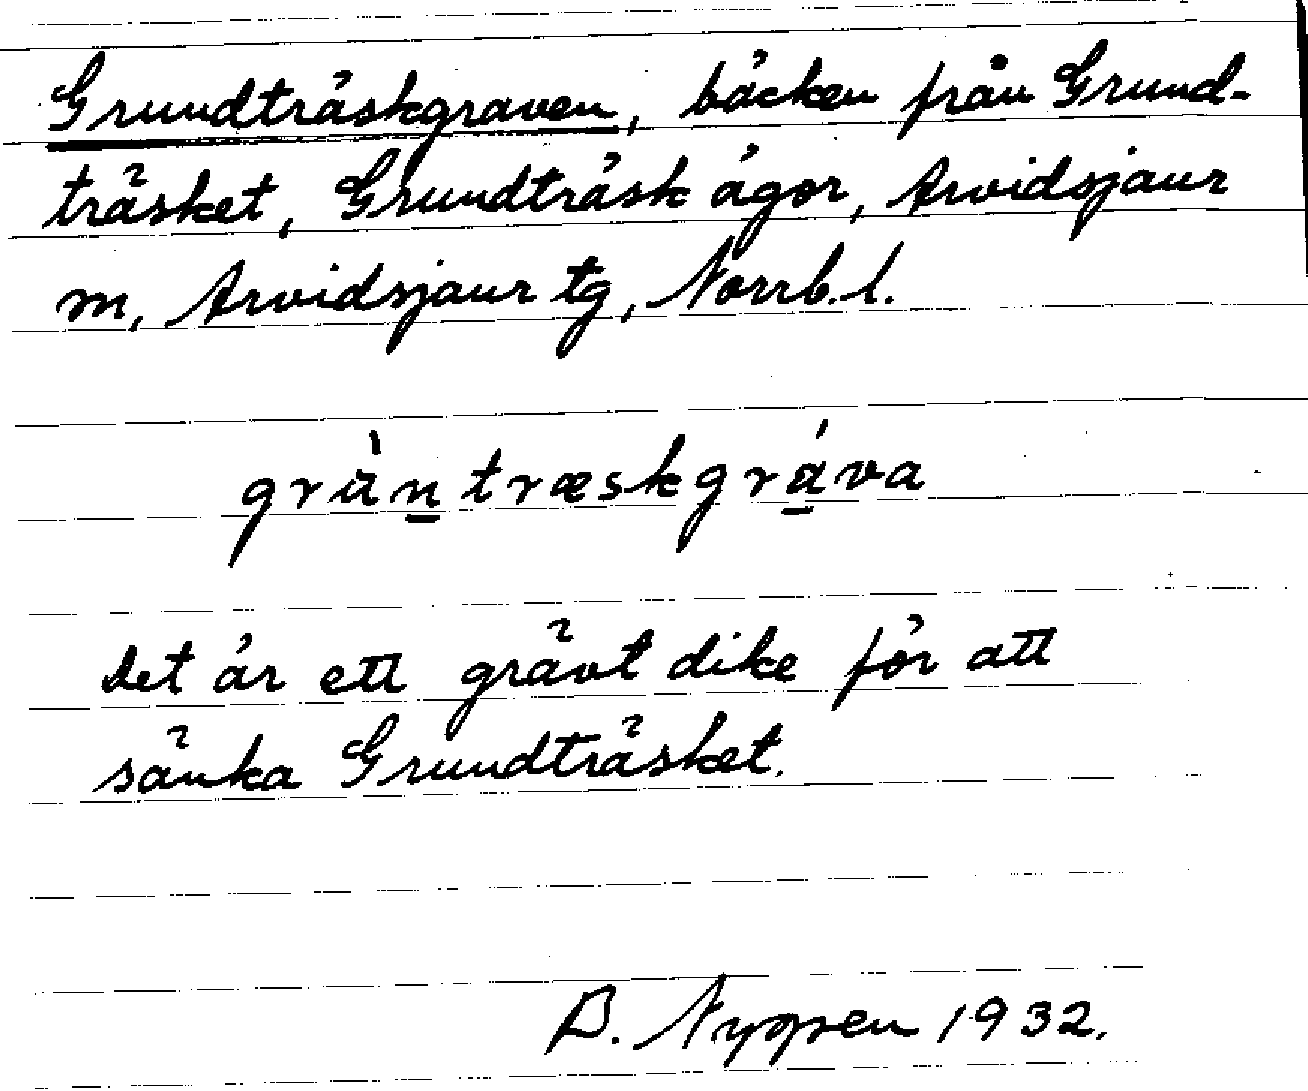 Grundträskgraven, bäcken från Grund-
träsket, Grundträsk ägor, Arvidsjaur
m, Arvidsjaur tg, Norrb. l.
grùn̲træskgrá̲va
det är ett grävt dike för att
sänka Grundträsket.
B. Nygren 1932.